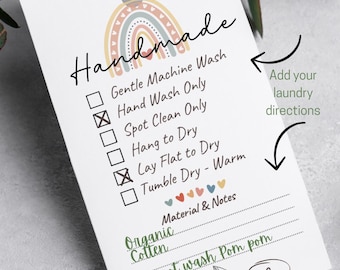 Handmade
Gentle Machine Wash
Hand Wash Only
Spot Clean Only
Hang to Dry
Lay Flat to Dry
Tumble Dry - Warm
Material & Notes
Organic
Cotten
wash Pom pom
Add your
laundry
directions